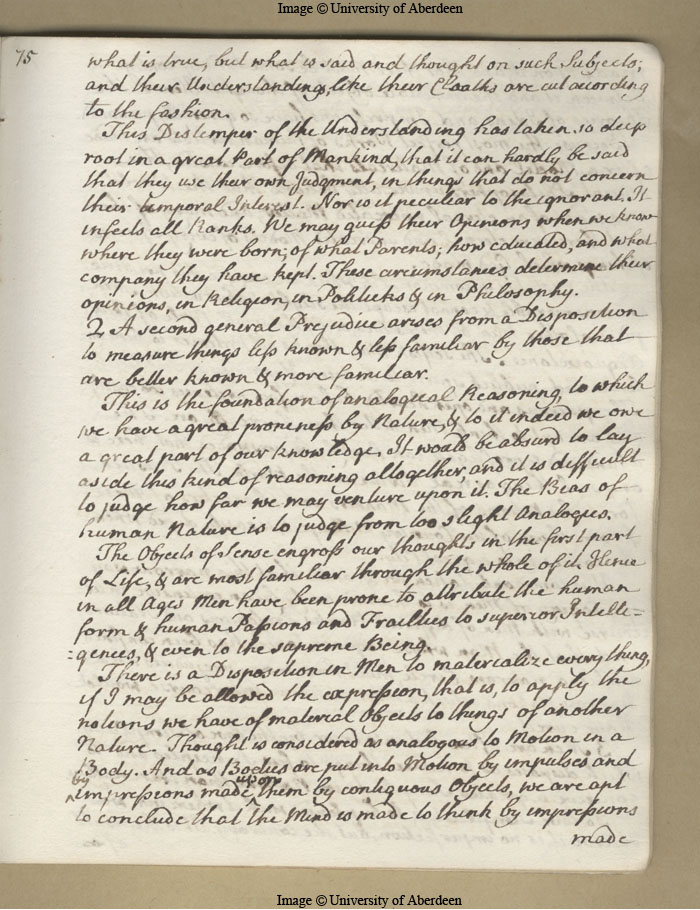 Image © University of Aberdeen
75
what is true, but what is said and thought on such Subjects;
and their Understandings, like their Cloaths are cut according
to the fashion.
This Distemper of the Understanding has taken so deep
root in a great Part of Mankind, that it can hardly be said
that they use their own Judgment, in things that do not concern
their temporal Interest. Nor is it peculiar to the ignorant. It
infects all Ranks. We may guess their Opinions when we know
where they were born; of what Parents; how educated, and what
company they have kept. These circumstances determine their
opinions, in Religion, in Politicks & in Philosophy.
2. A second general Prejudice arises from a Disposition
to measure things less known & less familiar by those that
are better known & more familiar.
This is the foundation of analogical Reasoning, to which
we have a great proneness by Nature, & to it indeed we owe
a great part of our knowledge. It would be absurd to lay
aside this kind of reasoning altogether, and it is difficult
to judge how far we may venture upon it. The Bias of
human Nature is to judge from too slight Analogies.
The Objects of Sense engross our thoughts in the first part
of Life, & are most familiar through the whole of it. Hence
in all Ages Men have been prone to attribute the human
form & human Passions and Frailties to superior Intelli=
=gences, & even to the supreme Being.
There is a Disposition in Men to materialize every thing,
if I may be allowed the expression, that is, to apply the
notions we have of material Objects to things of another
Nature. Thought is considered as analogous to Motion in a
Body. And as Bodies are put into Motion by impulses and
by impressions made upon them by contiguous Objects, we are apt
to conclude that the Mind is made to think by impressions
made
Image © University of Aberdeen